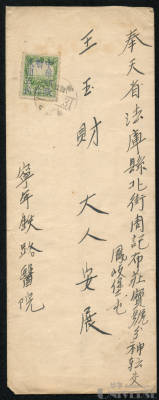 奉天省法庫縣北街周記布莊寶號分神轉交
鳳岐堡也
王玉財 大人安展
寧年鉄路醫院